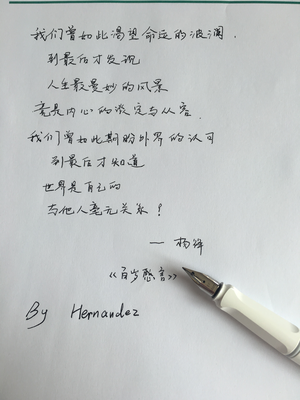 我们曾如此渴望命运的波澜.
到最后才发现
人生最曼妙的风景
竟是内心的淡定与从容
我们曾如此期盼外界的认可
到最后才知道
世界是自己的
与他人毫无关系!
— 杨绛
《百岁感言》
By Hernandez